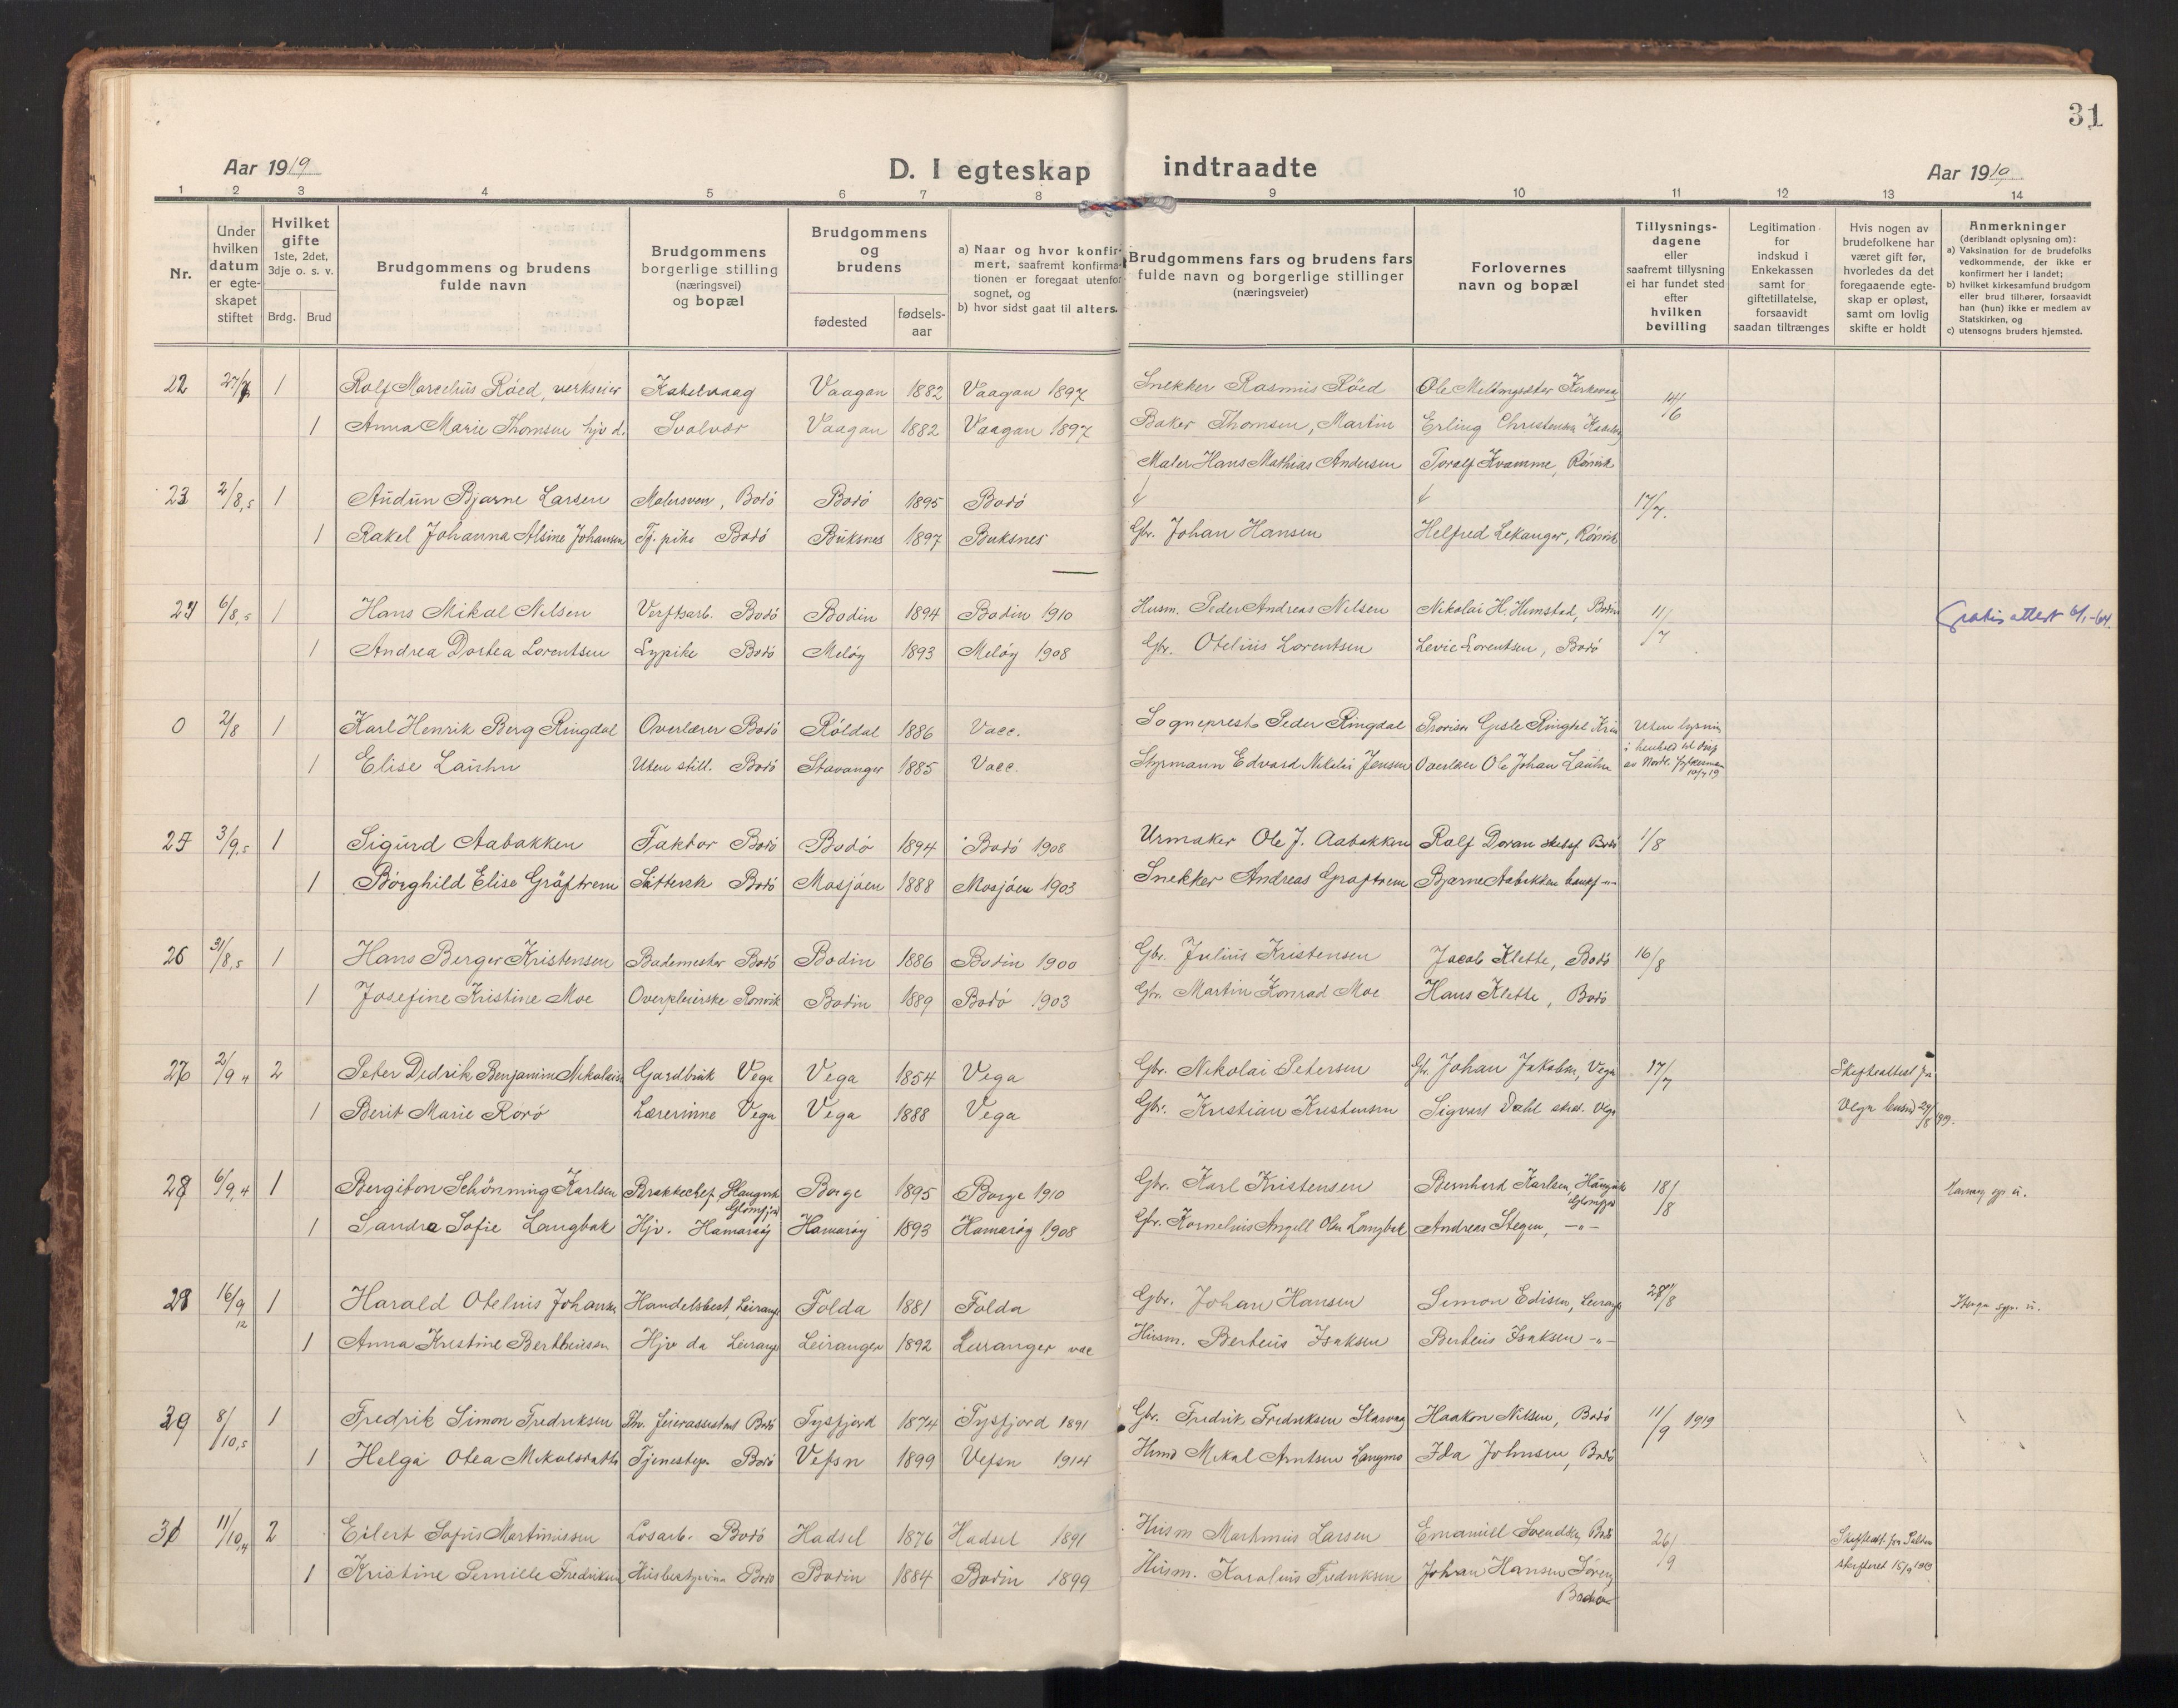 31
Aar 1919 D. I egteskap indtraadte Aar 1919
1 2 3 4 5 6 7 8 9 10 11 12 13 14
Nr.
Under hvilken datum er egte-skapet stiftet
Hvilket gifte 1ste, 2det, 3dje o. s. v.
Brdg. Brud
Brudgommens og brudens fulde navn
Brudgommens borgerlige stilling (næringsvei) og bopæl
Brudgommens og brudens
fødested fødsels-aar
a) Naar og hvor konfir-mert, saafremt konfirma-tionen er foregaat utenfor sognet, og
b) hvor sidst gaat til alters.
Brudgommens fars og brudens fars fulde navn og borgerlige stillinger (næringsveier)
Forlovernes navn og bopæl
Tillysnings-dagene eller saafremt tillysning ei har fundet sted efter hvilken bevilling
Legitimation for indskud i Enkekassen samt for giftetillatelse, forsaavidt saadan tiltrænges
Hvis nogen av brudefolkene har været gift før, hvorledes da det foregaaende egte-skap er opløst, samt om lovlig skifte er holdt
Anmerkninger (deriblandt oplysning om):
a) Vaksination for de brudefolks vedkommende, der ikke er konfirmert her i landet;
b) hvilket kirkesamfund brudgom eller brud tilhører, forsaavidt han (hun) ikke er medlem av Statskirken, og
c) utensogns bruders hjemsted.
22 27/7 1 Rolf Marcelius Röed, verkseier Kabelvaag Vaagan 1882 Vaagan 1897 Snekker Rasmus Röed Ole 14/6
1 Anna Marie Thomsen hjv d. Svolvær Vaagan 1882 Vaagan 1897 Baker Thomsen, Martin Erling Christensen
Maler Hans Mathias Andersen Toralf Kvamme, Rönvik
23 2/8,5 1 Audun Bjarne Larsen Malersven, Bodö Bodö 1895 Bodö 17/7.
1 Rakel Johanna Alsine Johansen Tj. pike Bodö Buksnes 1897 Buksnes Gbr. Johan Hansen Helfred Lekanger, Rönvik
24 6/8,5 1 Hans Mikal Nilsen Verftsarb. Bodö Bodin 1894 Bodin 1910 Husm. Peder Andreas Nilsen Nikolai H. Hunstad, Bodin 11/7 Gratisattest 6/1-64.
1 Andrea Dortea Lorentsen Sypike Bodö Melöy 1893 Melöy 1908 Gbr. Otelius Lorentsen Levic Lorentsen, Bodö
0 2/8 1 Karl Henrik Berg Ringdal Overlærer Bodö Röldal 1886 Vacc. Sogneprest Peder Ringdal Provisor Gisle Ringdal Uten lysning
i henhold til disp
1 Elise Lauhn Uten still. Bodö Stavanger 1885 Vacc. Styrmann Edvard Nikolai Jensen Overlærer Ole Johan Lauhn av Nordl. fylkesmann
10/7 19
25 3/9,5 1 Sigurd Aabakken Faktor Bodö Bodö 1894 Bodö 1908 Urmaker Ole J. Aabakken Rolf Doran Bodö 1/8
1 Borghild Elise Gräftrem Sætterske Bodö Mosjöen 1888 Mosjöen 1903 Snekker Andreas Graftrem Bjarne Aabakken bankf -"-
26 31/8,5 1 Hans Berger Kristensen Bademester Bodö Bodin 1886 Bodin 1900 Gbr. Julius Kristensen Jacob Klette, Bodö 16/8
1 Josefine Kristine Moe Overpleierske Rönvik Bodin 1889 Bodö 1903 Gbr. Martin Konrad Moe Hans Klette, Bodö
27 2/9 4 2 Peter Didrik Benjamin Nikolaisen Gardbruk Vega Vega 1854 Vega Gbr. Nikolai Petersen Gbr. Johan Jakobsen, Vega 17/7 Skifteattest fra
1 Berit Marie Rorö Lærerinne Vega Vega 1888 Vega Gbr. Kristian Kristensen Sigvart Dahl Vega Vega 29/8 1919.
28 6/9,4 1 Bergiton Schönning Karlsen Brakkechef, Haugvik Borge 1895 Borge 1910 Gbr. Karl Kristensen Bernhard Karlsen, Haugvik 18/8
Glomfjord Glomfjord
1 Sandra Sofie Langbak Hjv. Hamaröy Hamaröy 1893 Hamaröy 1908 Gbr. Kornelius Angell Olsen Langbak Andreas Stegen, -"-
29 16/9 12 1 Harald Otelius Johansen Handelsbest. Leiranger Folda 1881 Folda Gbr. Johan Hansen Simon Edisen, Leiranger 28/8
1 Anna Kristine Bertheusen Hjv da Leiranger Leiranger 1892 Leiranger vac Husm. Berteus Isaksen Berteus Isaksen -"-
30 8/10,5 1 Fredrik Simon Fredriksen Fhv. feierassistent Bodö Tysfjord 1874 Tysfjord 1891 Gbr. Fredrik Fredriksen Skarvaag Haakon Nilsen, Bodö 11/9 1919
1 Helga Otea Mikalsdatter Tjenestep. Bodö Vefsn 1899 Vefsn 1914 Husm Mikal Arntsen Langmo Ida Johnsen, Bodö
31 11/10,4 2 Eilert Sofus Martinussen Losarb. Bodö Hadsel 1876 Hadsel 1891 Husm Martinius Larsen Emanuel Svendsen, Bodö 26/9
1 Kristine Pernille Fredriksen Husbestyrerinne Bodö Bodin 1884 Bodin 1899 Husm. Karolius Fredriksen Johan Hansen
Bodö